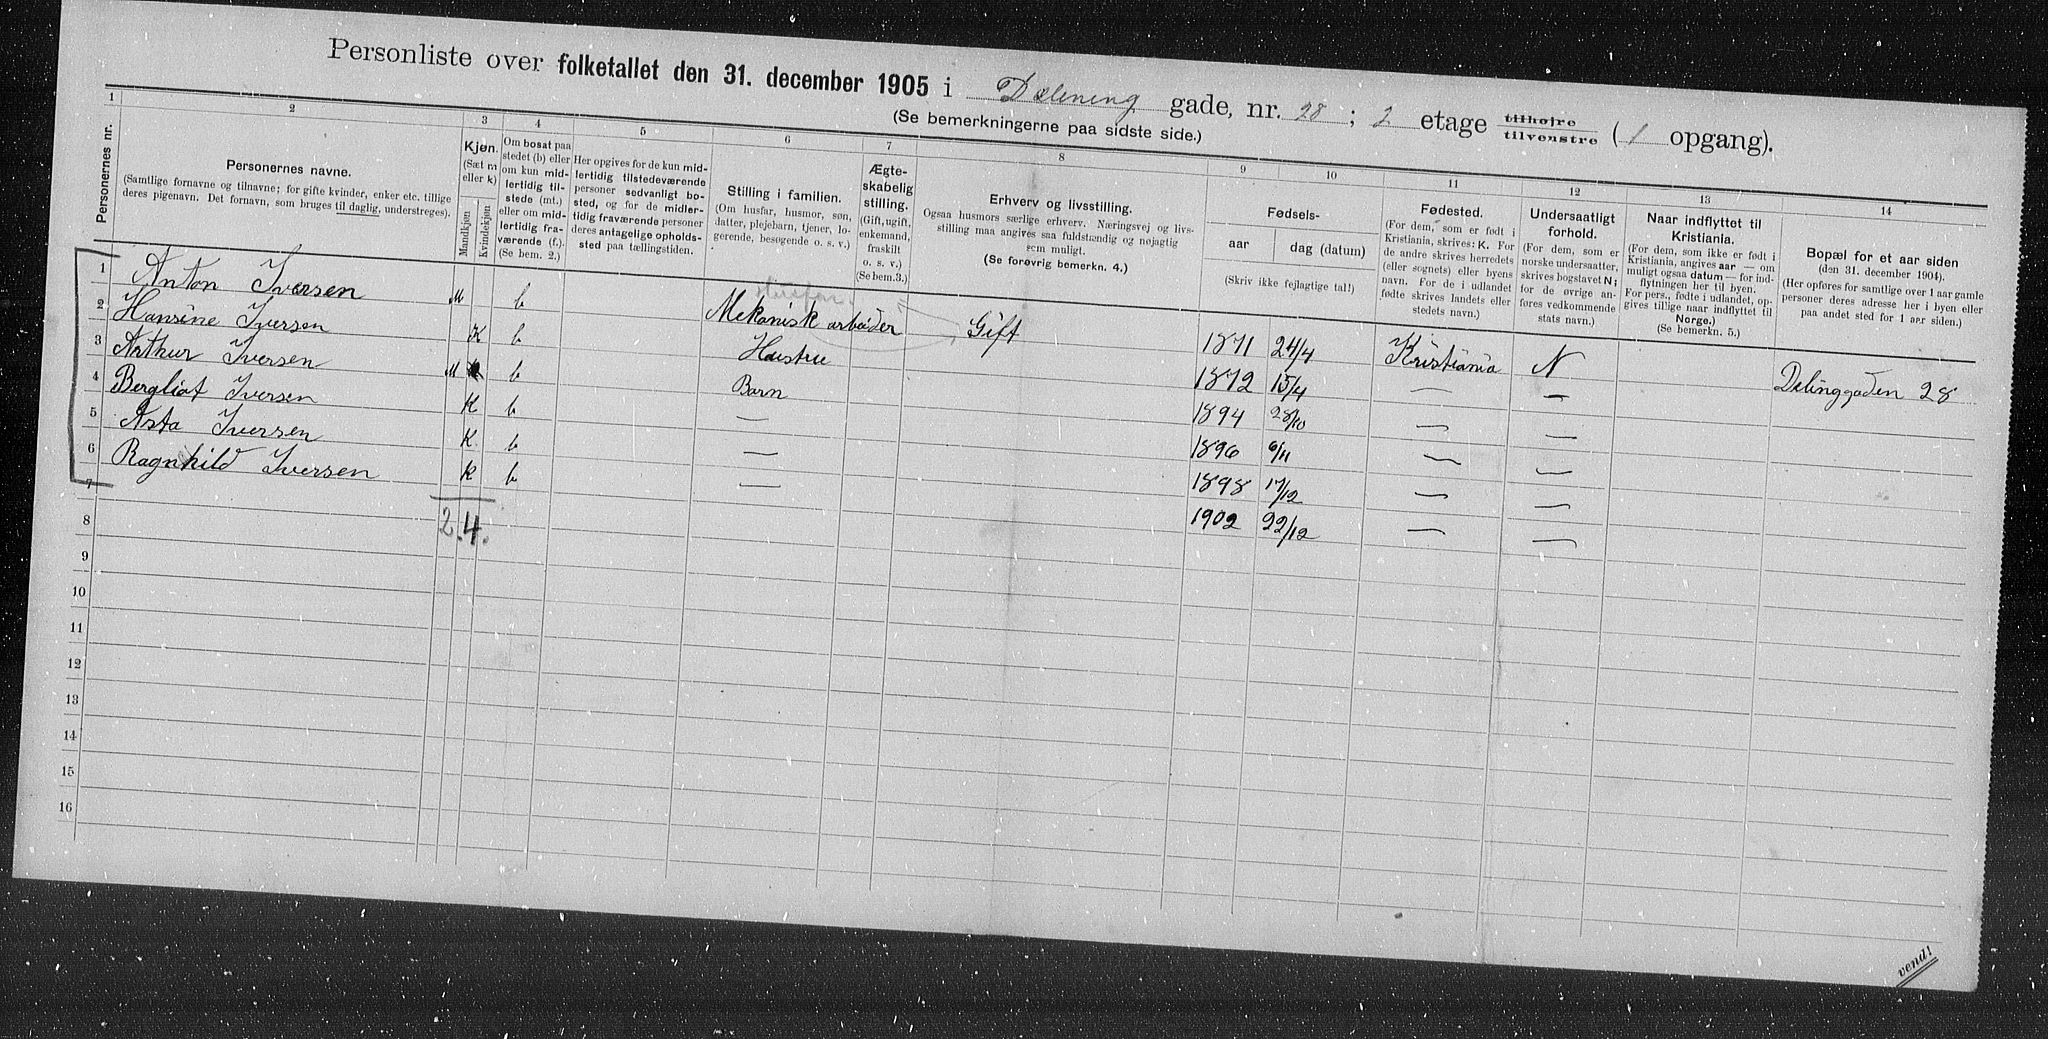 Personliste over folketallet den 31. december 1905 i Dælening gade, nr. 28 ; 2 etage tilhøjre tilvenstre ( 1 opgang).
(Se bemerkningerne paa sidste side.)
1 2 3 4 5 6 7 8 9 10 11 12 13 14
Personernes nr.
Personernes navne.
(Samtlige fornavne og tilnavne; for gifte kvinder, enker etc. tillige
deres pigenavn. Det fornavn, som bruges til daglig, understreges).
Kjøn.
(Sæt m
eller k)
Mandkjøn
Kvindekjøn
Om bosat paa
stedet (b) eller
om kun mid-
lertidig til-
stede (mt.)
eller om mid-
lertidig fra-
værende (f.).
(Se bem. 2.)
Her opgives for de kun mid-
lertidig tilstedeværende
personer sedvanligt bo-
sted, og for de midler-
tidig fraværende personer
deres antagelige opholds-
sted paa tællingstiden.
Stilling i familien.
(Om husfar, husmor, søn,
datter, plejebarn, tjener, lo-
gerende, besøgende o. s. v.)
Ægte-
skabelig
stilling.
(Gift, ugift,
enkemand,
fraskilt
o. s. v.)
(Se bem. 3.)
Erhverv og livsstilling.
Ogsaa husmors særlige erhverv. Næringsvej og livs-
stilling maa angives saa fuldstændig og nøjagtig
som muligt.
(Se forøvrig bemerkn. 4.)
Fødsels-
aar dag (datum)
(Skriv ikke fejlagtige tal!)
Fødested.
(For dem, som er født i
Kristiania, skrives: K. For
de andre skrives herredets
(eller sognets) eller byens
navn. For de i udlandet
fødte skrives landets eller
stedets navn.)
Undersaatligt
forhold.
(For dem, som er
norske undersaatter,
skrives bogstavet N;
for de øvrige an-
føres vedkommende
stats navn.)
Naar indflyttet til
Kristiania.
(For dem, som ikke er født i
Kristiania, angives aar — om
muligt ogsaa datum — for ind-
flytningen her til byen.
For pers., fødte i udlandet, op-
gives tillige naar indflyttet til
Norge.)
(Se bemerkn. 5.)
Bopæl for et aar siden
(den 31. december 1904).
(Her opføres for samtlige over 1 aar gamle
personer deres adresse her i byen eller
paa andet sted for 1 aar siden.)
1 Anton Iversen M b Mekanisk arbeider Gift 1871 24/4 Kristiania N Dælinggaden 28
2 Hansine Iversen K b Hustru 1872 15/4 — —
3 Arthur Iversen M b Barn 1894 28/10 — —
4 Bergliot Iversen K b — 1896 6/11 — —
5 Asta Iversen K b — 1898 17/12 — —
6 Ragnhild Iversen K b — 1902 22/12 — —
7
8 2. 4.
9
10
11
12
13
14
15
16
vend!